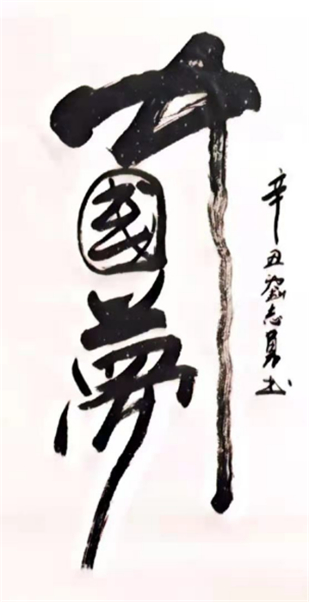 中國夢
辛丑劉志勇书